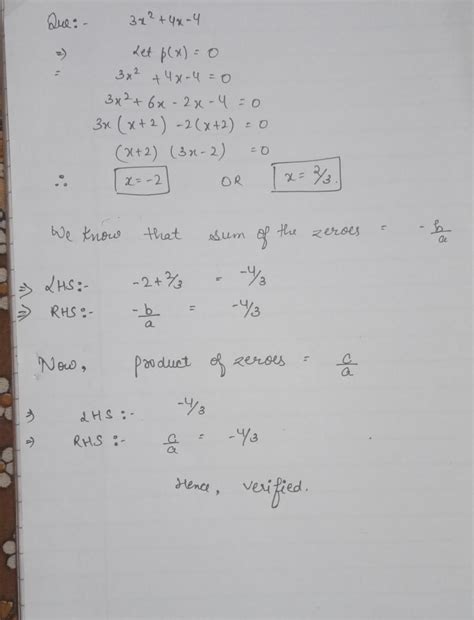 Que:- 3x² + 4x - 4
⇒ Let p(x) = 0
= 3x² + 4x - 4 = 0
3x² + 6x - 2x - 4 = 0
3x (x+2) -2(x+2) = 0
(x+2) (3x-2) = 0
∴ x = -2 OR x = 2/3.
We know that sum of the zeroes = -b/a
⇒ LHS:- -2+2/3 = -4/3
⇒ RHS:- -b/a = -4/3
Now, product of zeroes = c/a
⇒ LHS:- -4/3
⇒ RHS:- c/a = -4/3
Hence, verified.